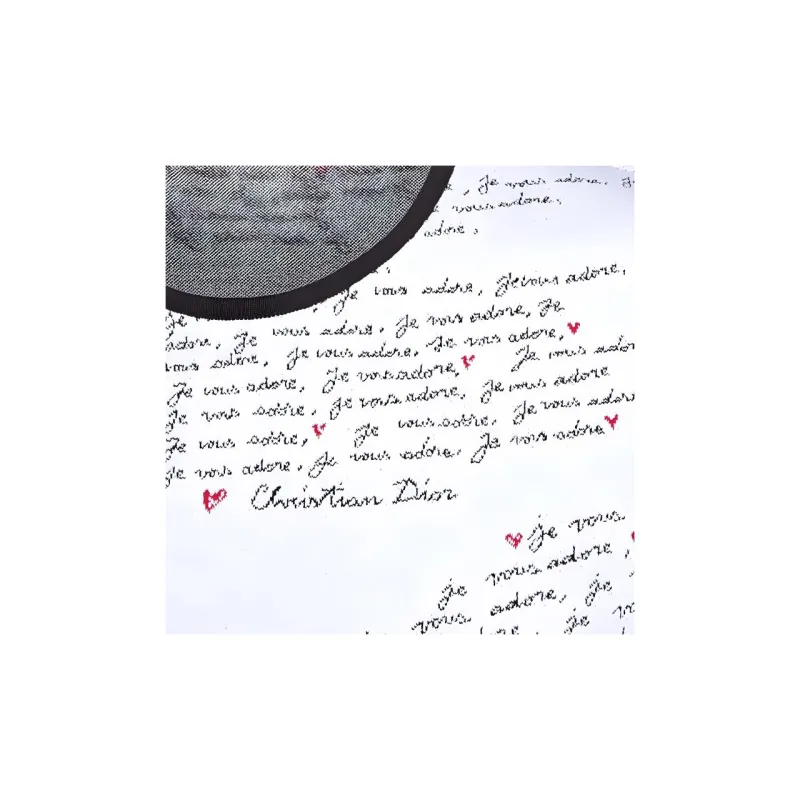 , Je vous adore.
e vous adore.
adore,
Je vous adore, Je vous adore,
Je
adore, Je vous adore. Je vous adore, Je
vous adore, Je vous adore, Je vous adore,
Je vous adore, Je vous adore, Je vous ador
Je vous adore, Je vous adore, Je vous adore
Je vous adore, Je vous adore, Je vous adore
Je vous adore, Je vous adore. Je vous adore
Christian Dior
je vous
je vous adore,
vous adore, je
je